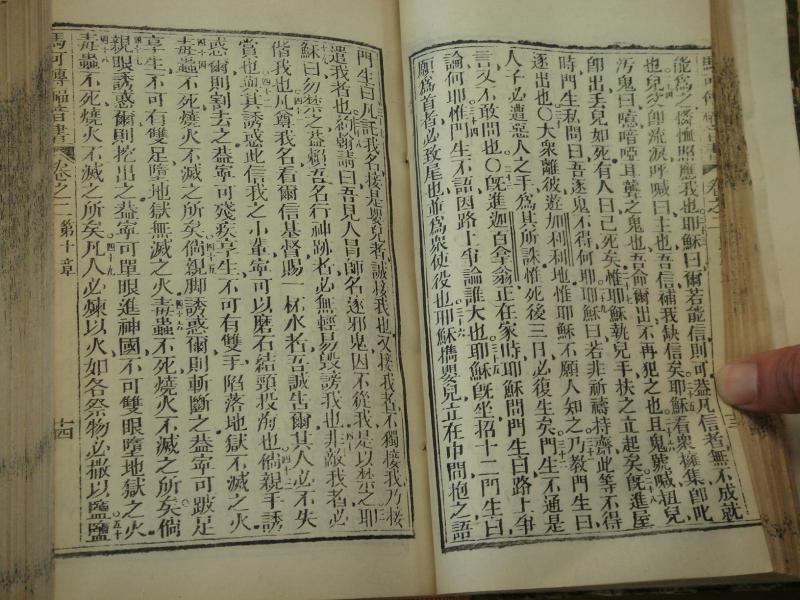 能為之憐恤照應我也耶穌曰爾若能信則可蓋凡信者無不成就
也兒父卽流淚呼喊曰主也吾信補我缺信矣耶穌看衆擁集卽叱
汚鬼曰喑啞且聾之鬼也吾命爾出不再犯之也且鬼號喊扭兒
卽出丟兒如死有人曰已死矣惟耶穌執兒手扶之立起矣旣進屋
時門生私問曰吾逐鬼不得何耶耶穌曰若非祈禱持齋此等不得
逐出也○大衆離彼遊加利利地惟耶穌不願人知之乃教門生曰
人子必遭惡人之手爲其所誅惟死後三日必復生矣門生不通是
言又不敢問也○旣進迦百拿翁正在家時耶穌問門生曰路上爭
論何耶惟門生不語因路上爭論誰大也耶穌旣坐招十二門生曰
願爲首者必致尾也並爲衆使役也耶穌擕嬰兒立在巾間抱之語
門生曰凡託我名接是嬰兒者誠接我也又接我者也不獨接我乃接
遣我者也約翰講曰吾見人冒師名逐邪鬼因不從我是以禁之耶
穌曰勿禁之蓋賴吾名行神跡者必無輕易毀謗我也非敵我者必
偕我也凡尊我名看爾信基督賜一杯水者吾誠告爾其人必不失
賞也遇其誘惑此信我之小輩寧可以磨石結頸投海也倘親手誘
惑爾則割去之益寧可殘疾享生不可有雙手陷落地獄不滅之火
毒蟲不死燒火不滅之所矣倘親脚誘惑爾則斬斷之益寧可跛足
享生不可有雙足墮地獄無滅之火毒蟲不死燒火不滅之所矣倘
親眼誘惑爾則挖出之益寧可單眼進神國不可雙眼墮地獄之火
毒蟲不死燒火不滅之所矣凡人必煉以火如各祭物必撒以鹽鹽
馬可傳福音書 卷之二 第十章 十四